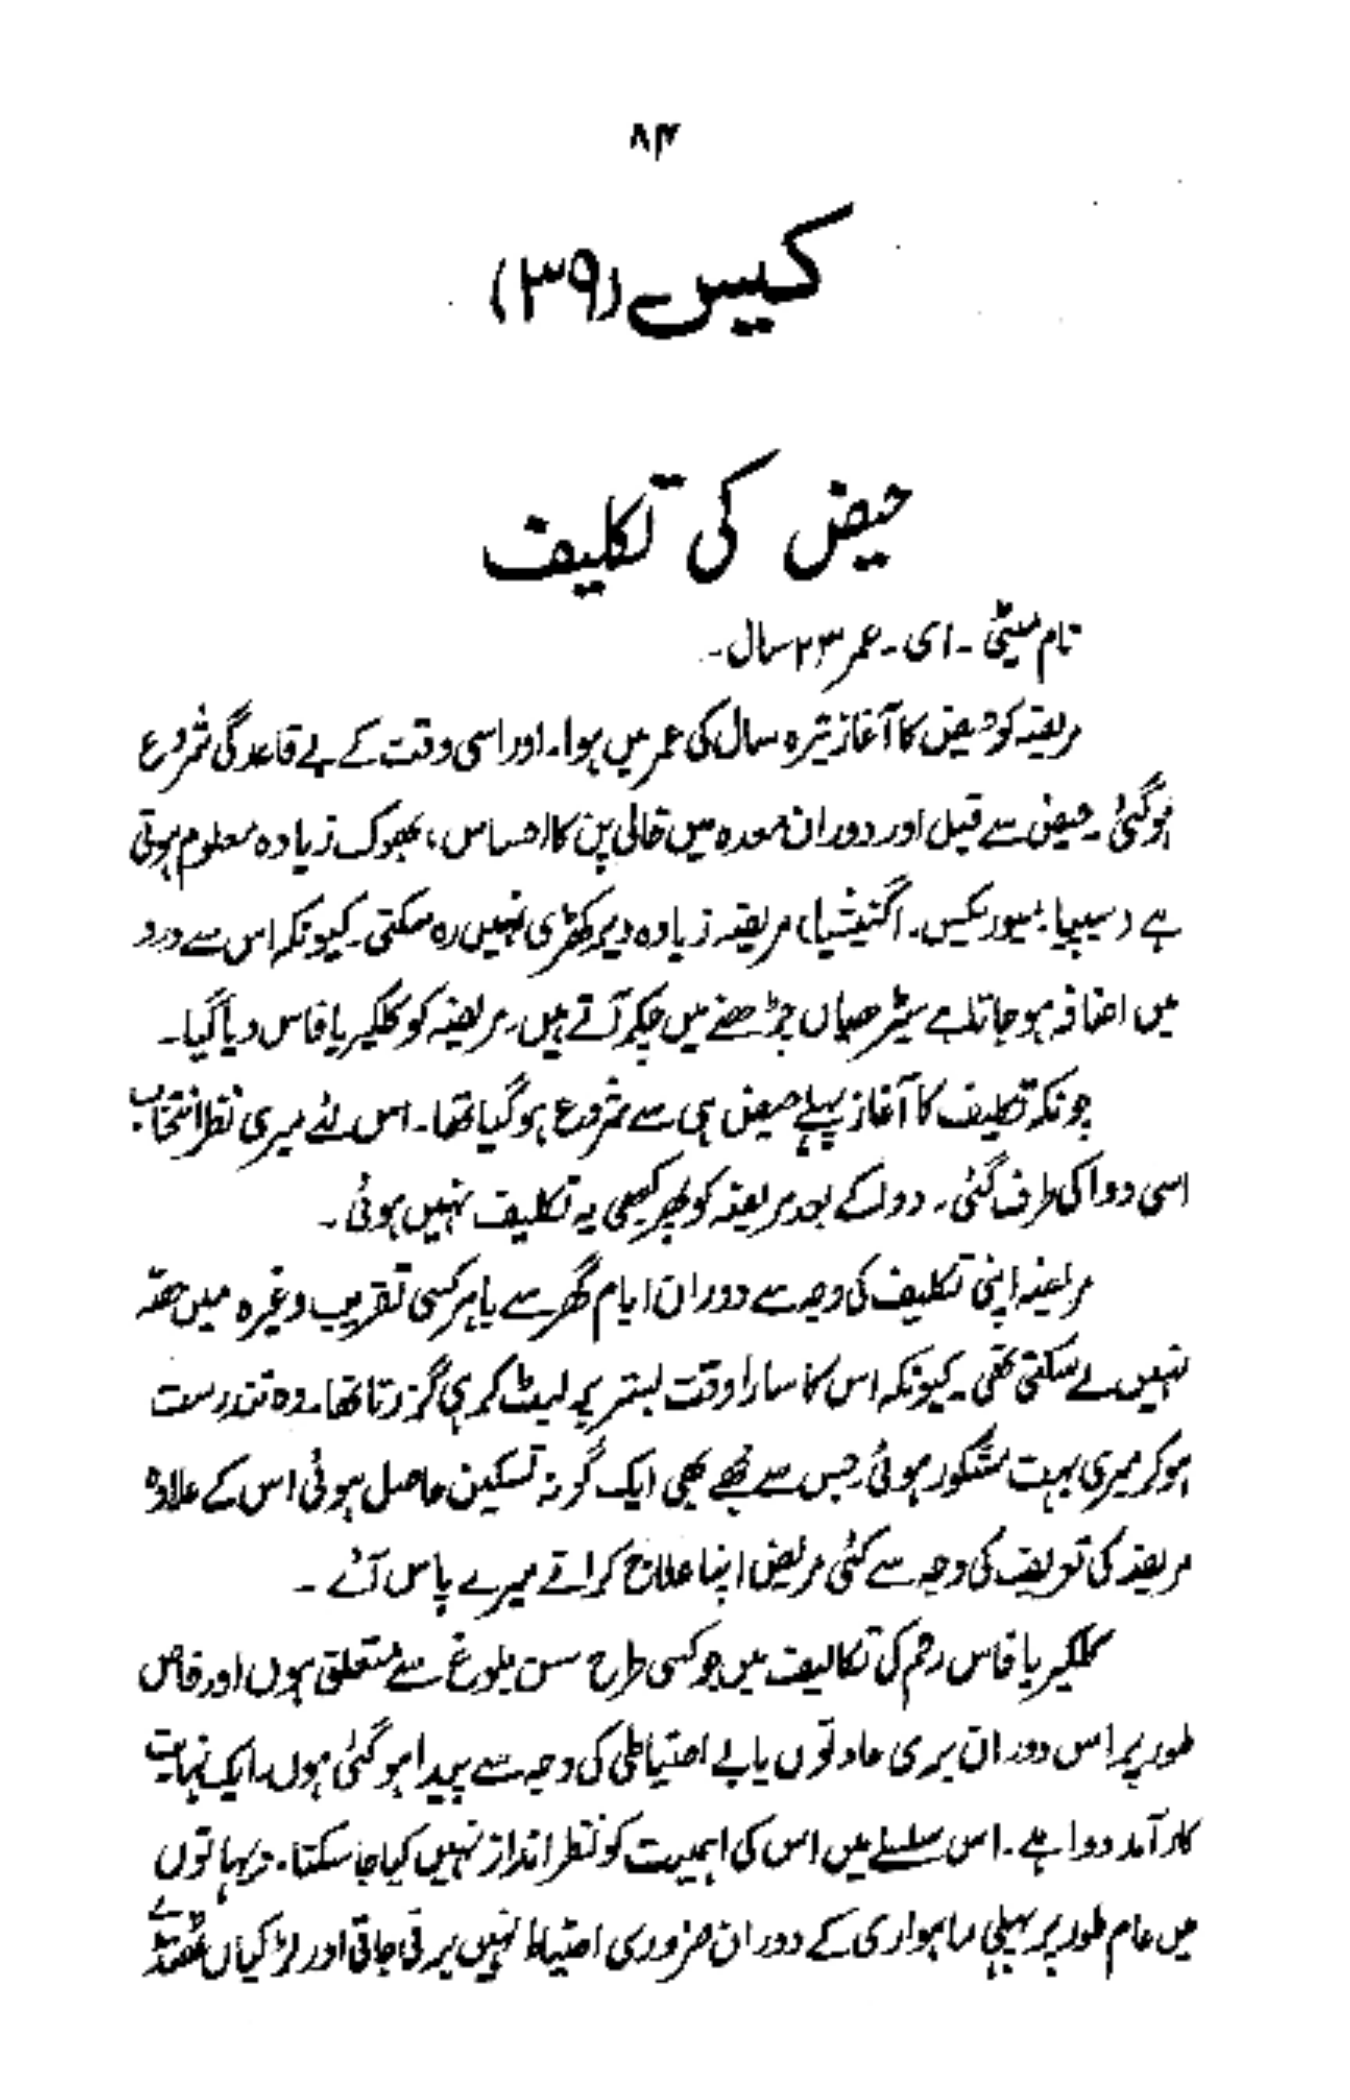 ۸۴
کیس (۳۹)
حیض کی تکلیف
نام میٹی ۔ ای ۔ عمر ۲۳ سال ۔
مریضہ کو حیض کا آغاز تیرہ سال کی عمر میں ہوا ۔ اور اسی وقت کے بے قاعدگی شروع
ہوگئی ۔ حیض سے قبل اور دوران معدہ میں خالی پن کا احساس ، بھوک زیادہ معلوم ہوتی
ہے (سیپیا ۔ میوریکس ۔ اگنیشیا) مریضہ زیادہ دیر کھڑی نہیں رہ سکتی ۔ کیونکہ اس سے درد
میں اضافہ ہو جاتا ہے سیڑھیاں چڑھنے میں چکر آتے ہیں ۔ مریضہ کو کلکیریا فاس دیا گیا ۔
چونکہ تکلیف کا آغاز پہلے حیض ہی سے شروع ہو گیا تھا ۔ اس لئے میری نظر انتخاب
اسی دوا کی طرف گئی ۔ دوا کے بعد مریضہ کو پھر کبھی یہ تکلیف نہیں ہوئی ۔
مریضہ اپنی تکلیف کی وجہ سے دوران ایام گھر سے باہر کسی تقریب وغیرہ میں حصّہ
نہیں لے سکتی تھی ۔ کیونکہ اس کا سارا وقت بستر پر لیٹ کر ہی گزرتا تھا ۔ وہ تندرست
ہو کر میری بہت مشکور ہوئی جس سے مجھے بھی ایک گونہ تسکین حاصل ہوئی اس کے علاوہ
مریضہ کی تعریف کی وجہ سے کئی مریض اپنا علاج کرانے میرے پاس آئے ۔
کلکیریا فاس رحم کی تکالیف میں جو کسی طرح سن بلوغ سے متعلق ہوں اور خاص
طور پر اس دوران بری عادتوں یا بے احتیاطی کی وجہ سے پیدا ہو گئی ہوں ۔ ایک نہایت
کار آمد دوا ہے ۔ اس سلسلے میں اس کی اہمیت کو نظر انداز نہیں کیا جا سکتا ۔ دیہاتوں
میں عام طور پر پہلی ماہواری کے دوران ضروری احتیاط نہیں برتی جاتی اور لڑکیاں ٹھنڈے